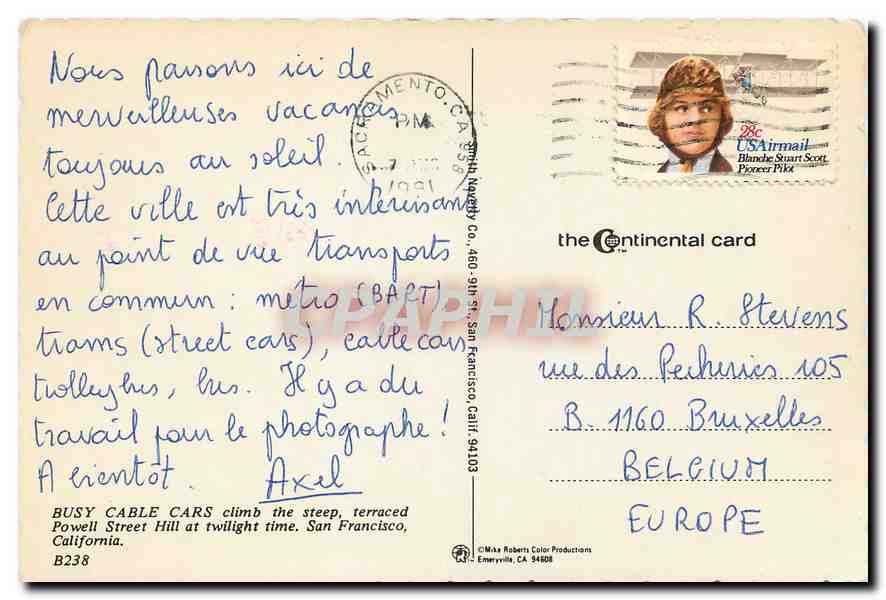 Nous passons ici de
merveilleuses vacances
toujours au soleil.
Cette ville est très intéressante
au point de vue transports
en commun : métro (BART)
trams (street cars), cable cars
trolleybus, bus. Il y a du
travail pour le photographe !
A bientôt. Axel
BUSY CABLE CARS climb the steep, terraced
Powell Street Hill at twilight time. San Francisco,
California.
B238
SACRAMENTO, CA 958
PM
7
1991
Smith Novelty Co., 460 - 9th St., San Francisco, Calif. 94103
28c
USAirmail
Blanche Stuart Scott
Pioneer Pilot
the Continental card
TM
Monsieur R. Stevens
rue des Pêcheries 105
B. 1160 Bruxelles
BELGIUM
EUROPE
©Mike Roberts Color Productions
Emeryville, CA 94608
CPAPHIL